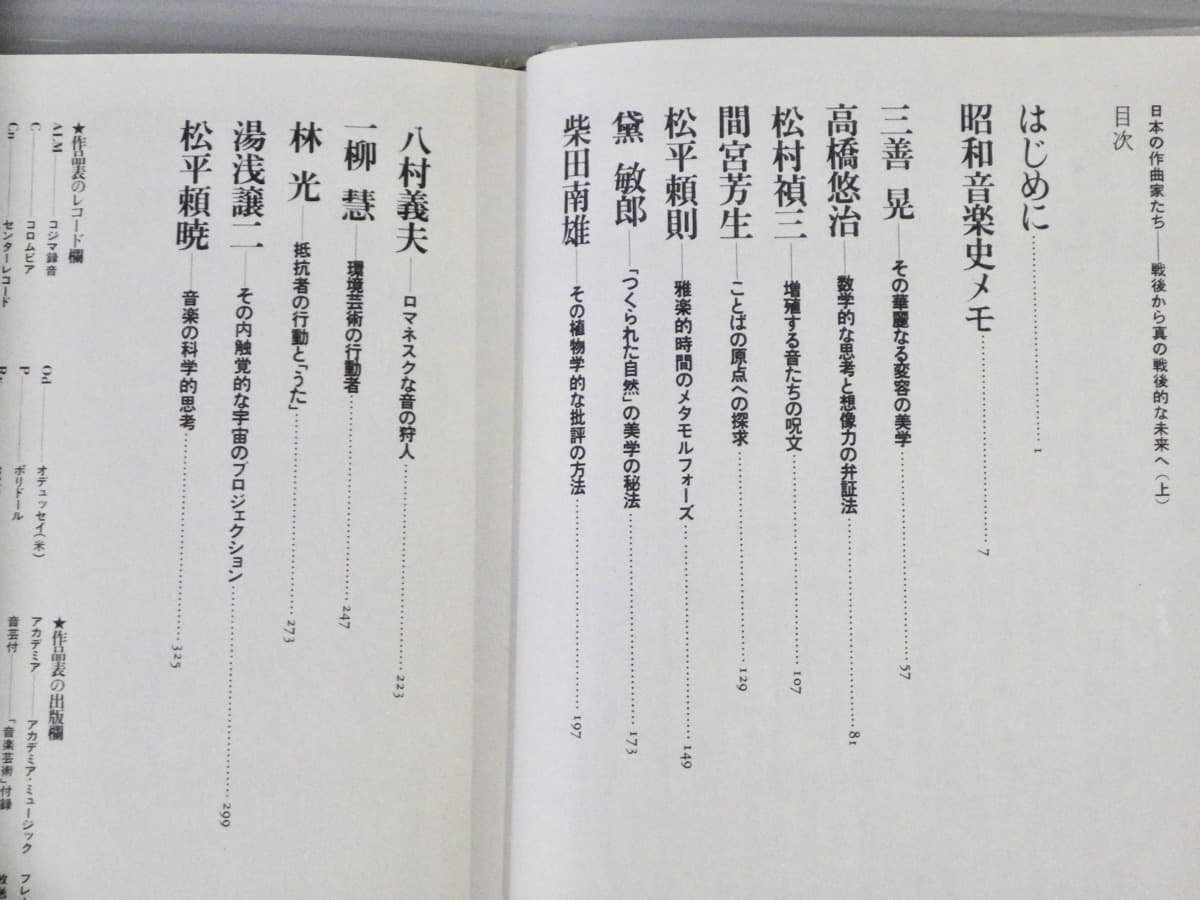 日本の作曲家たち——戦後から真の戦後的な未来へ（上）
目次
はじめに……1
昭和音楽史メモ……7
三善 晃——その華麗なる変容の美学……57
高橋悠治——数学的な思考と想像力の弁証法……81
松村禎三——増殖する音たちの呪文……107
間宮芳生——ことばの原点への探求……129
松平頼則——雅楽的時間のメタモルフォーズ……149
黛 敏郎——「つくられた自然」の美学の秘法……173
柴田南雄——その植物学的な批評の方法……197
八村義夫——ロマネスクな音の狩人……223
一柳 慧——環境芸術の行動者……247
林 光——抵抗者の行動と「うた」……273
湯浅譲二——その内触覚的な宇宙のプロジェクション……299
松平頼暁——音楽の科学的思考……325
★作品表のレコード欄
ALM——コジマ録音
C——コロムビア
Cn——センターレコード
Od——オデュッセイ（米）
P——ポリドール
★作品表の出版欄
アカデミア——アカデミア・ミュージック
音芸付——「音楽芸術」付録